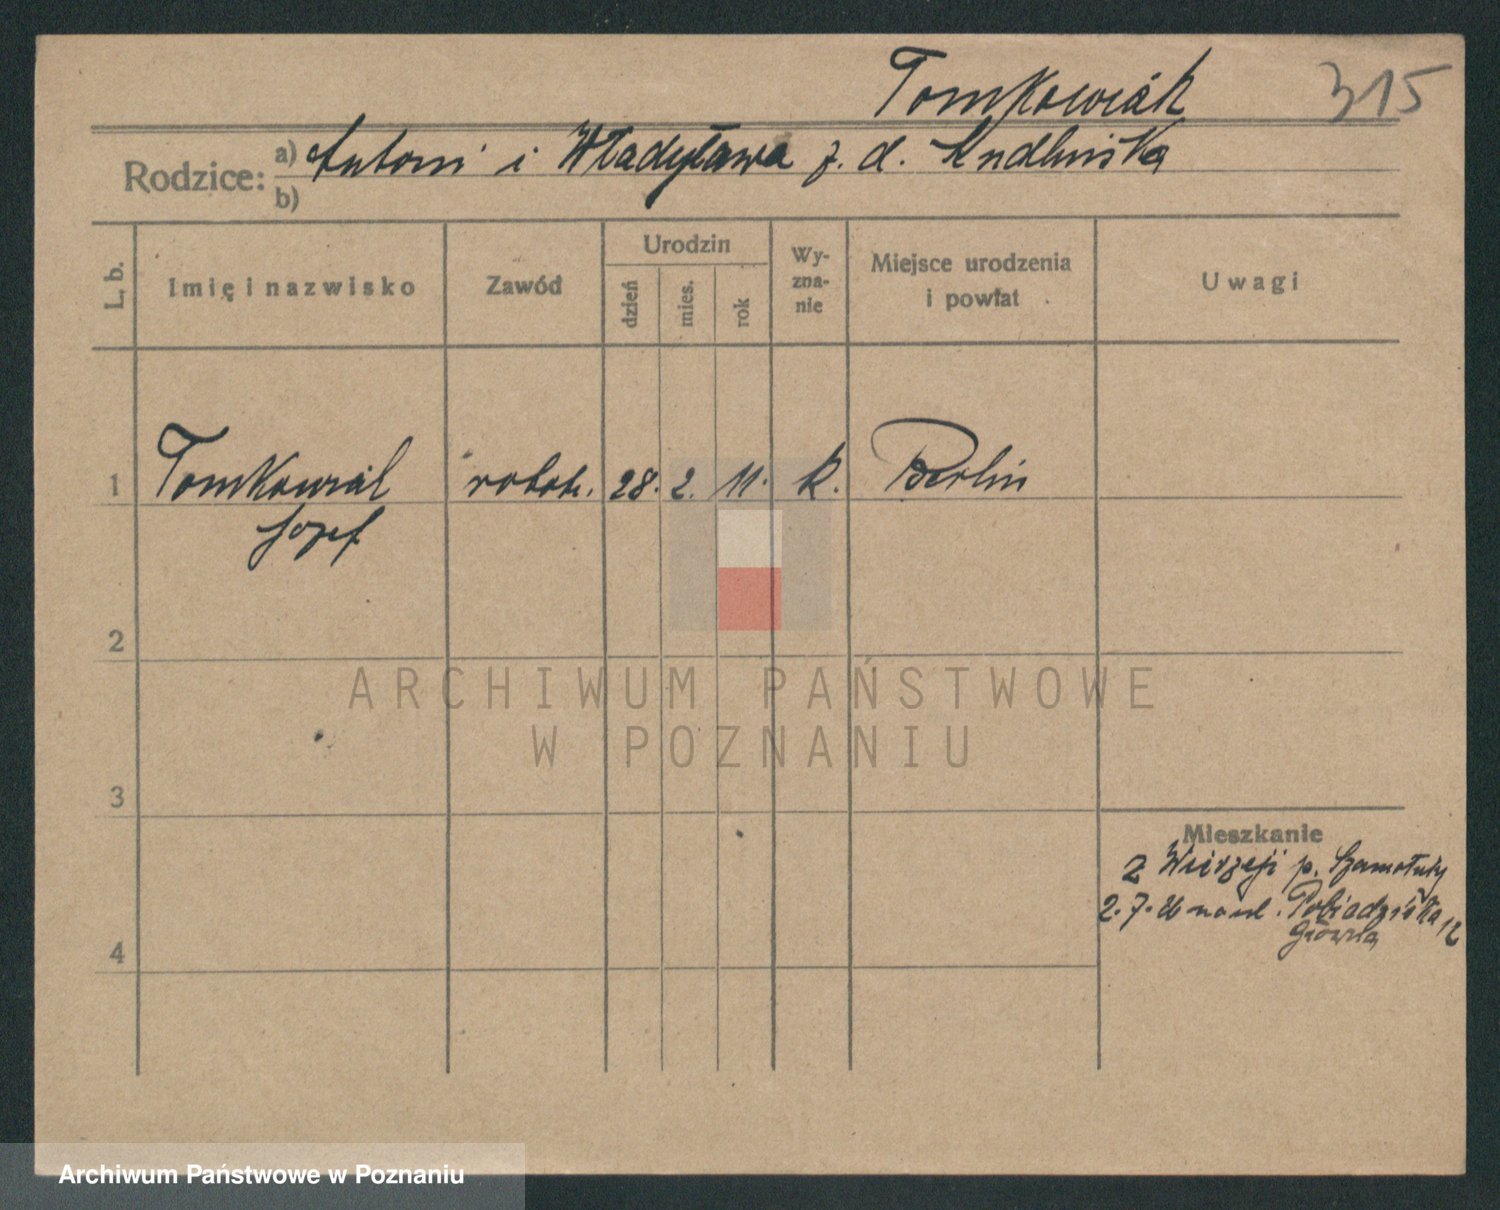 Tomkowiak 315
Rodzice: a) Antoni i Władysława z. d. Kudlińska
b)
L. b. Imię i nazwisko Zawód Urodzin dzień mies. rok Wy-
zna-
nie Miejsce urodzenia
i powiat Uwagi
1 Tomkowiak robotn. 28. 2. 11. k. Berlin
Jozef
2
ARCHIWUM PAŃSTWOWE
W POZNANIU
3
Mieszkanie
z Wierzeji p. Szamotuły
2. 7. 26 Pobiedziska 12
4 Główna
Archiwum Państwowe w Poznaniu